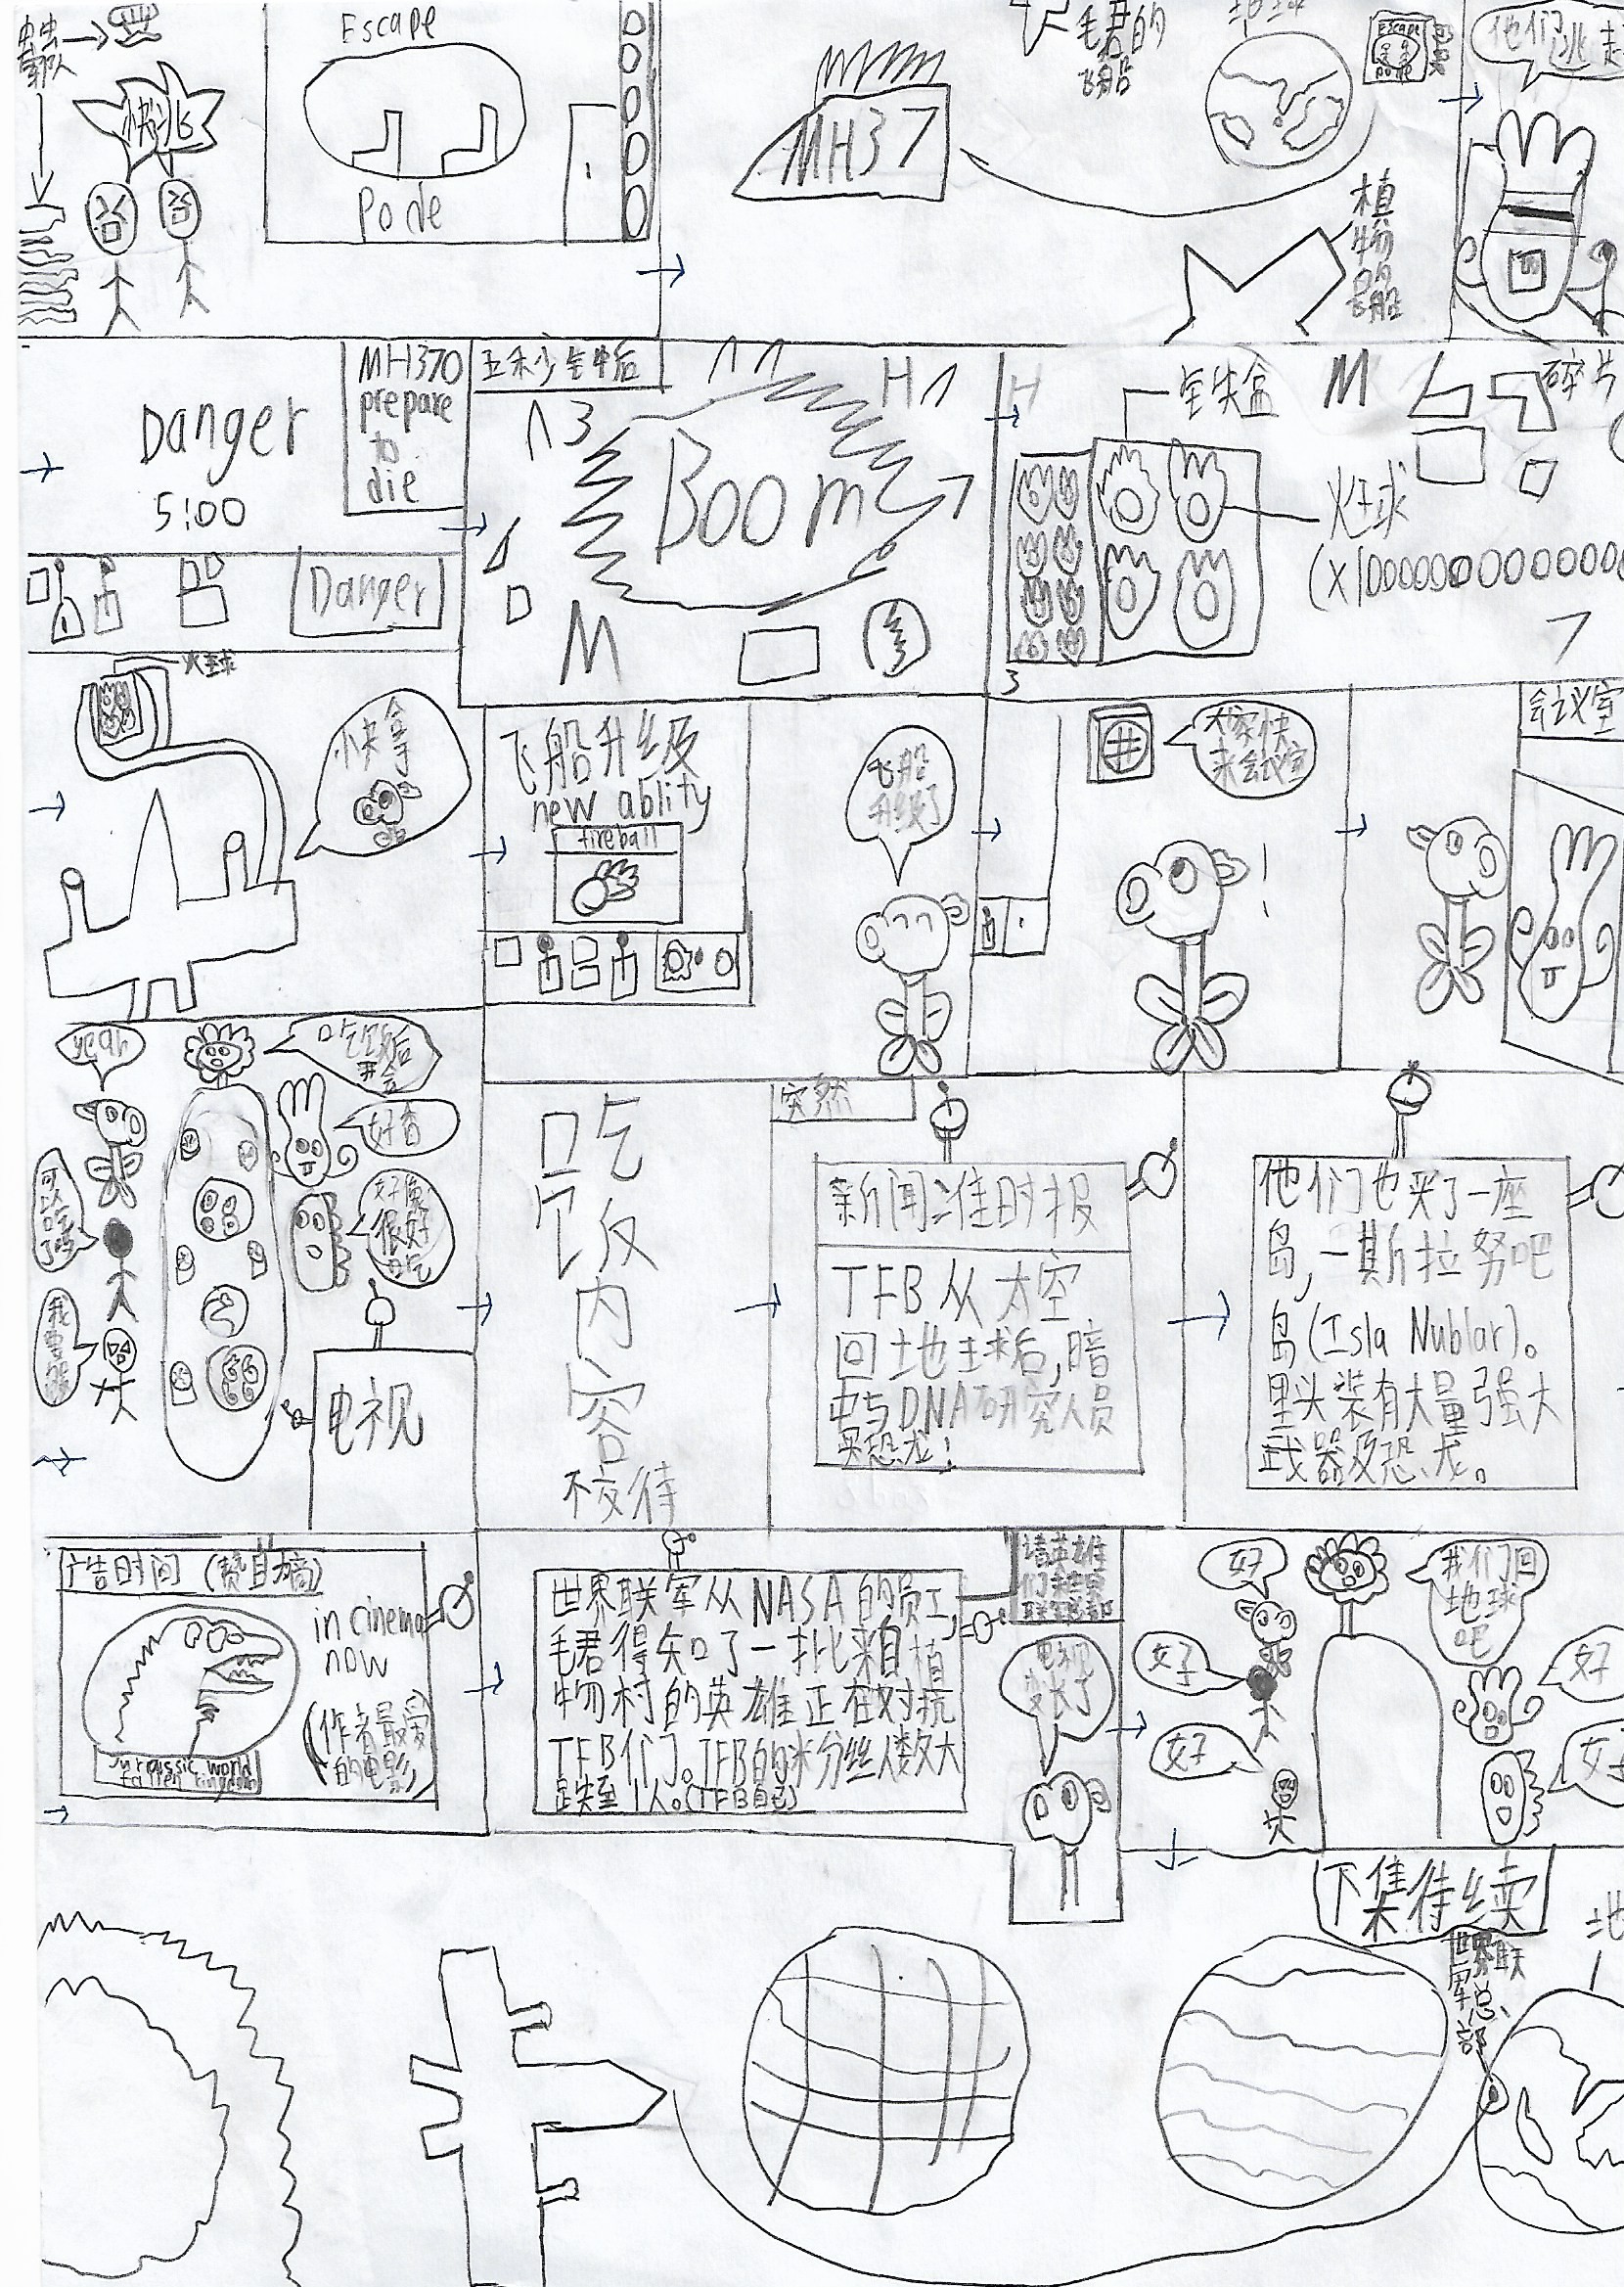 快逃
Escape
Pode
MH37
毛君的
飞船
Escape
pode
植
物
的
飞
船
他们逃走
Danger
5:00
MH370
prepare
to
die
Danger
Boom
M
黑夹盒
M
碎片
火球
火球
快拿
飞船升级
new ablity
fireball
飞船
升级了
大家快
来会议室
!
会议室
yeah
吃饭后
开会
好香
可
以
吃
了吗
好像
很好
吃
电视
吃
饭
内
容
不交待
突然
新闻准时报
TFB从太空
回地球后,暗
中与DNA研究人员
买恐龙!
他们也买了一座
岛,一斯拉努吧
岛(Isla Nublar)。
里头装有大量强大
武器及恐龙。
广告时间
in cinema
now
(作者最爱
的电影)
Jurrassic world
fallen kingdom
世界联军从NASA的员工,
毛君得知了一批来自植
物村的英雄正在对抗
TFB们。TFB的粉丝人数大
跌至1人。(TFB自己)
请英雄
好
我们回
地球
吧
好
好
好
下集待续
世界联
军
总
部